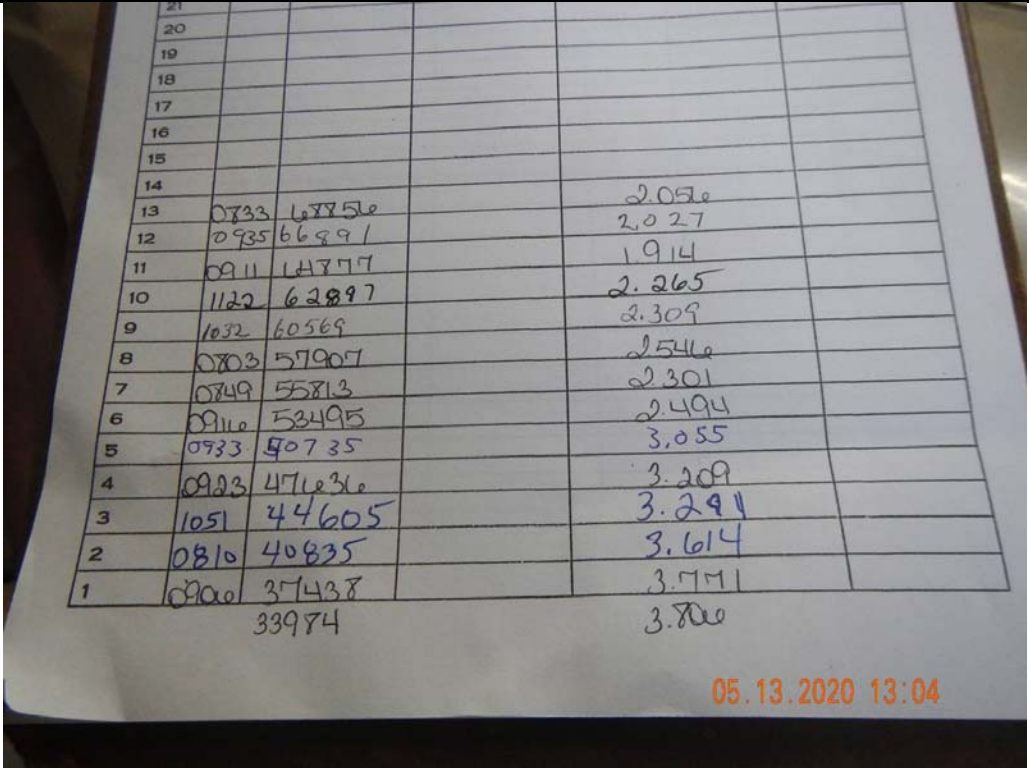 21
20
19
18
17
16
15
14
13 0833 68856 2.056
12 0935 66891 2.027
11 0911 64877 1.914
10 1122 62897 2.265
9 1032 60569 2.309
8 0803 57907 2.546
7 0849 55813 2.301
6 0916 53495 2.494
5 0933 50735 3.055
4 0923 47636 3.209
3 1051 44605 3.291
2 0810 40835 3.614
1 0906 37438 3.771
33984 3.806
05.13.2020 13:04